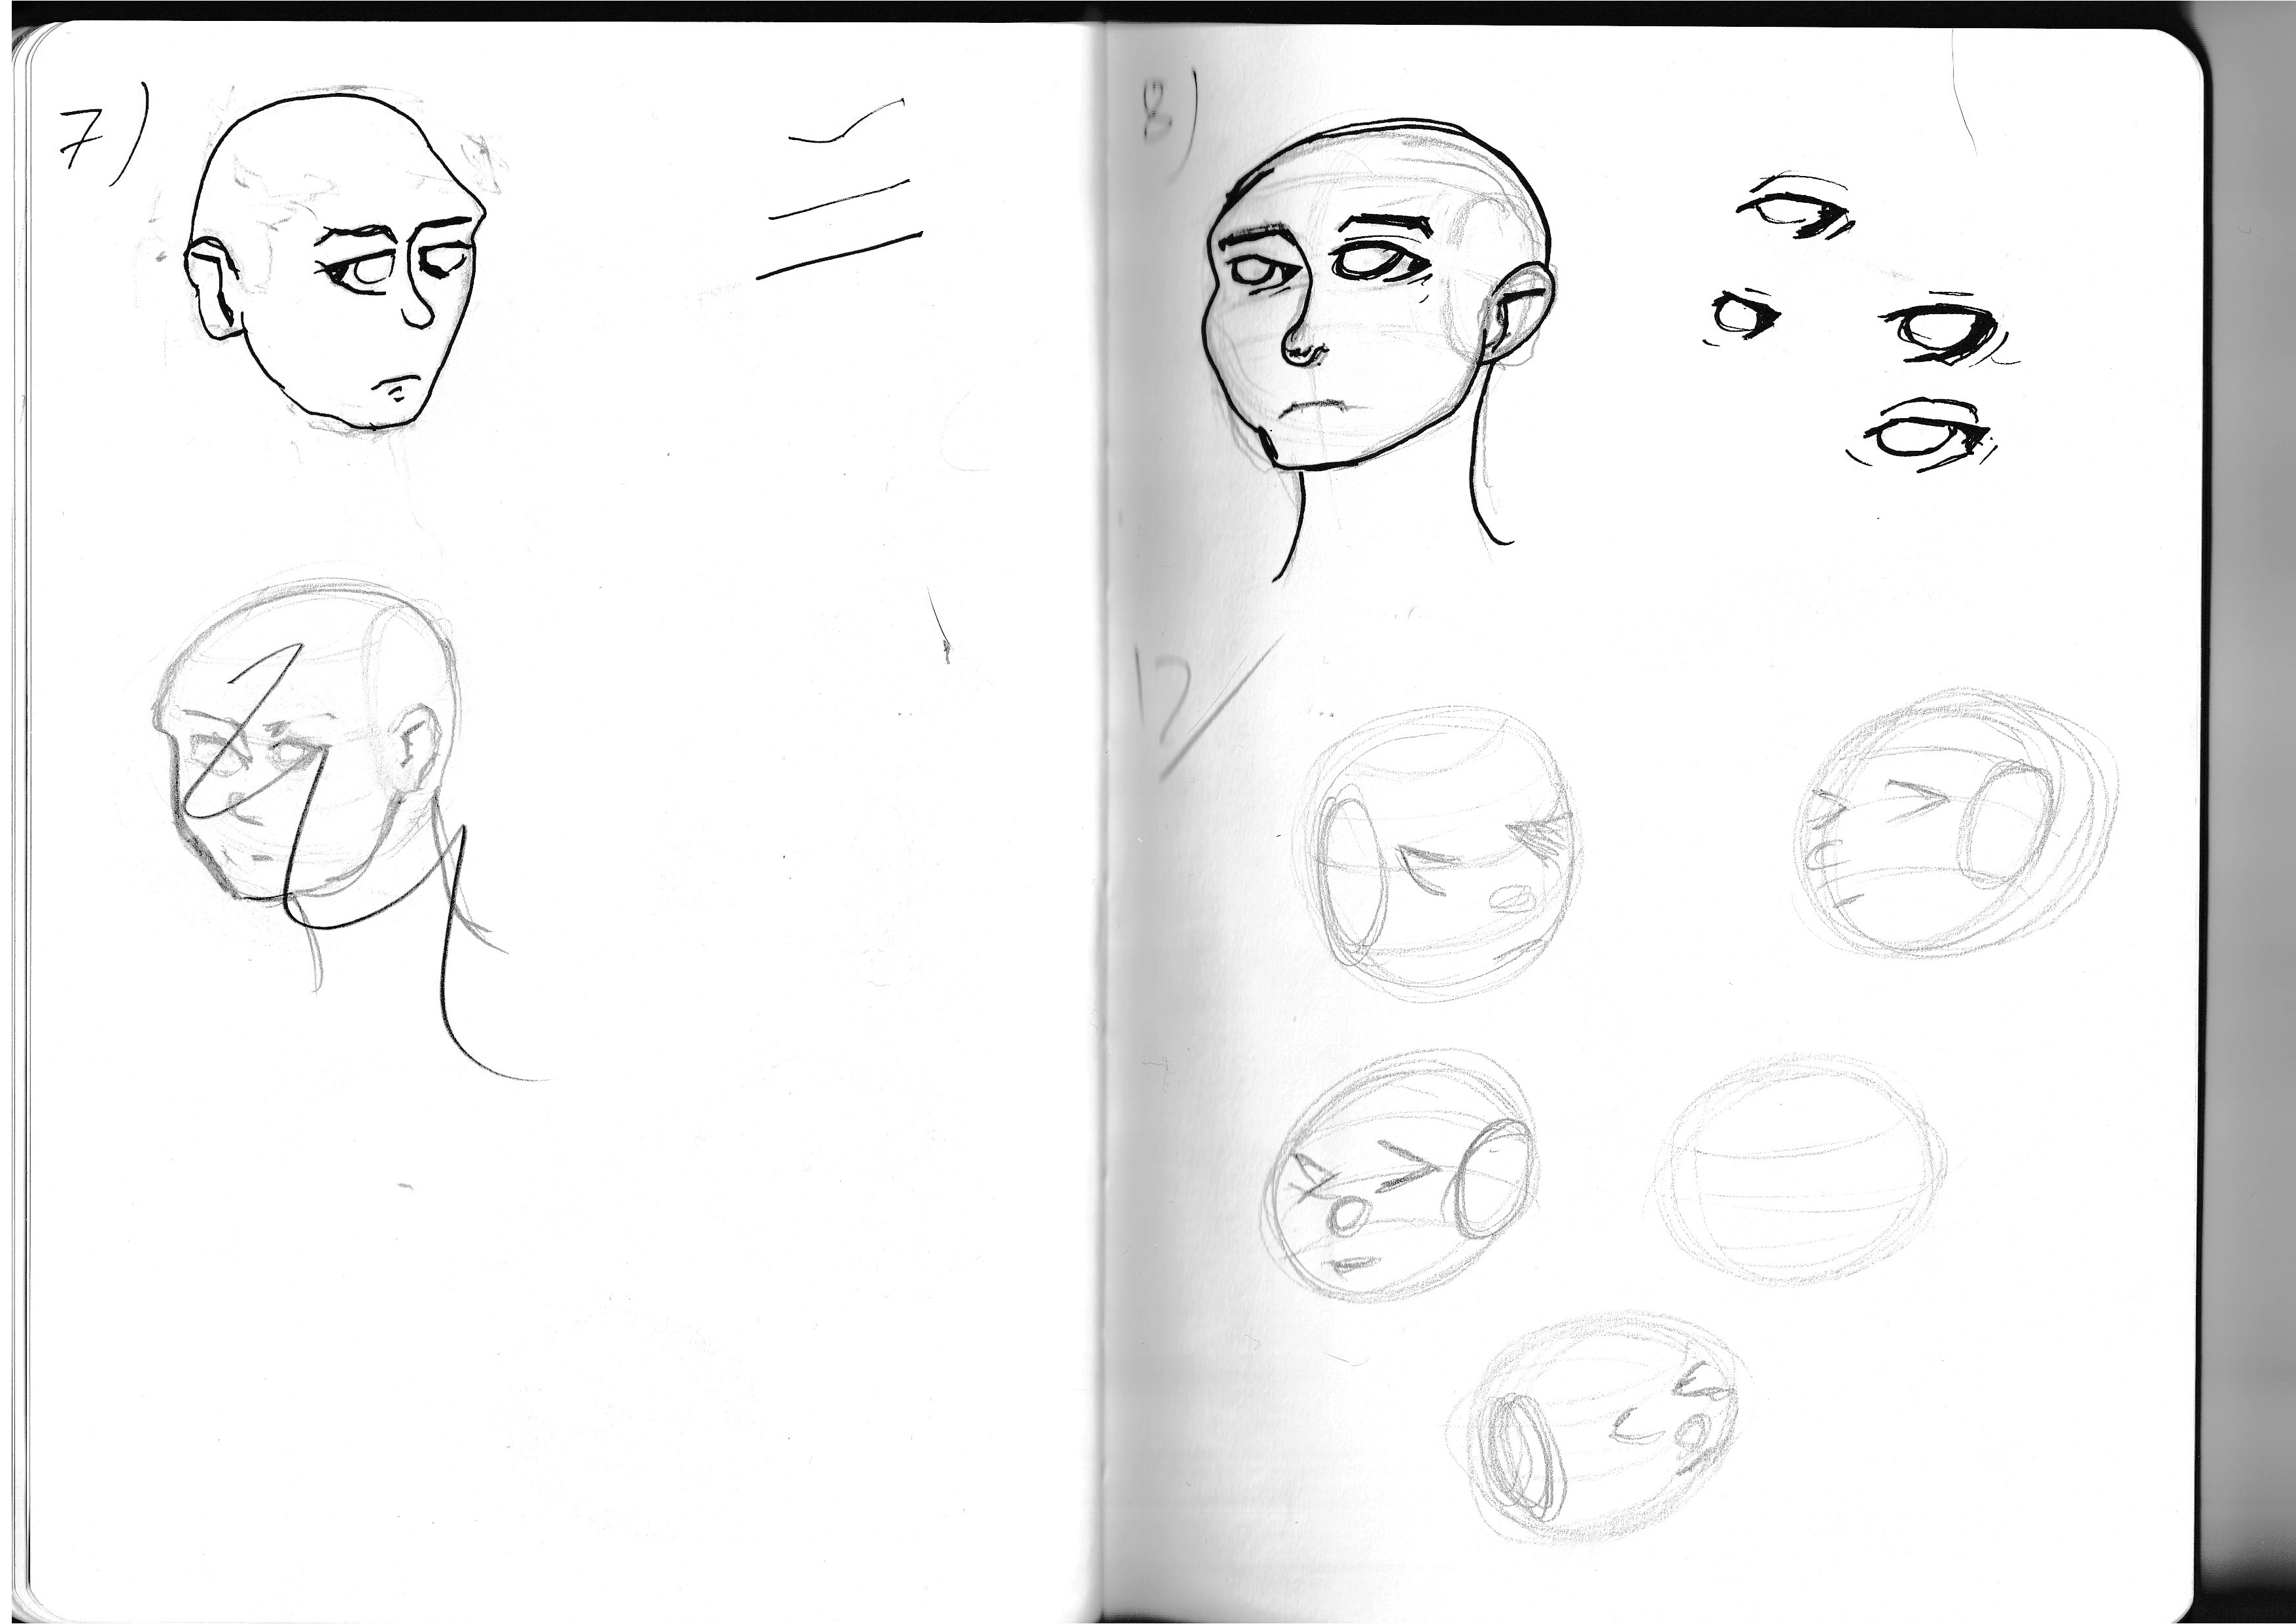 7)
8)
12/